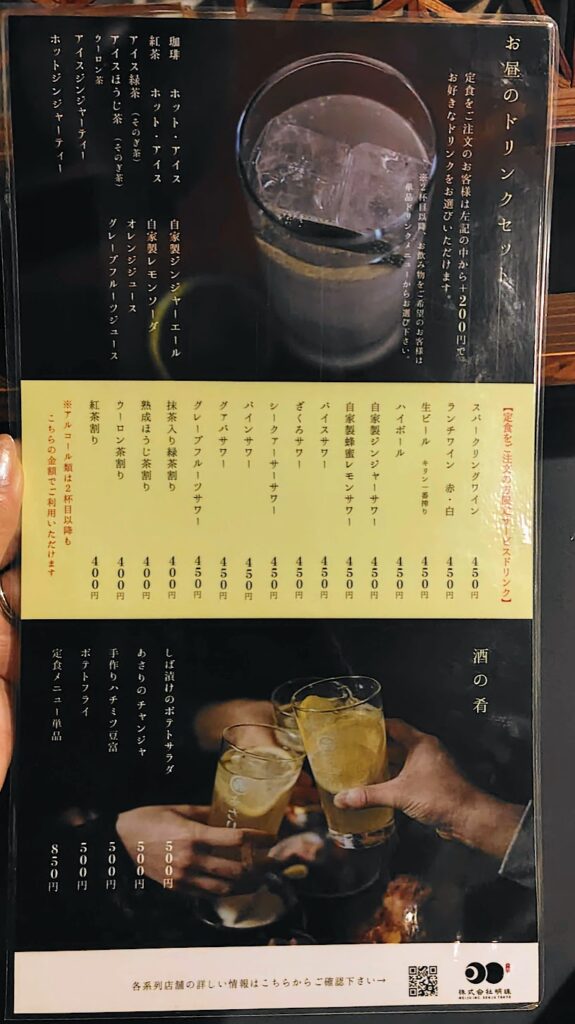 お昼のドリンクセット
定食をご注文のお客様は左記の中から+200円で、
お好きなドリンクをお選びいただけます。
※2杯目以降、お飲み物をご希望のお客様は
単品ドリンクメニューからお選び下さい。
珈琲 ホット・アイス
紅茶 ホット・アイス
アイス緑茶(そのぎ茶)
アイスほうじ茶(そのぎ茶)
ウーロン茶
アイスジンジャーティー
ホットジンジャーティー
自家製ジンジャーエール
自家製レモンソーダ
オレンジジュース
グレープフルーツジュース
【定食をご注文の方限定サービスドリンク】
スパークリングワイン 450円
ランチワイン 赤・白 450円
生ビール キリン一番搾り 450円
ハイボール 450円
自家製ジンジャーサワー 450円
自家製蜂蜜レモンサワー 450円
パイスサワー 450円
ざくろサワー 450円
シークァーサーサワー 450円
パインサワー 450円
グァバサワー 450円
グレープフルーツサワー 450円
抹茶入り緑茶割り 400円
熟成ほうじ茶割り 400円
ウーロン茶割り 400円
紅茶割り 400円
※アルコール類は2杯目以降も
こちらの金額でご利用いただけます
酒の肴
しば漬けのポテトサラダ 500円
あさりのチャンジャ 500円
手作りハチミツ豆富 500円
ポテトフライ 500円
定食メニュー単品 850円
各系列店舗の詳しい情報はこちらからご確認下さい→
株式会社明珠